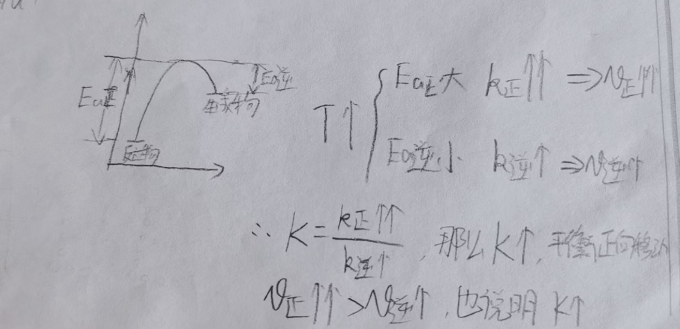 Ea正
Ea逆
生成物
反应物
T↑
Ea正大 k正↑↑ ⇒v正↑↑
Ea逆小 k逆↑ ⇒v逆↑
∴ K = k正↑↑ / k逆↑ , 那么K↑, 平衡正向移动
v正↑↑>v逆↑, 也说明 K↑